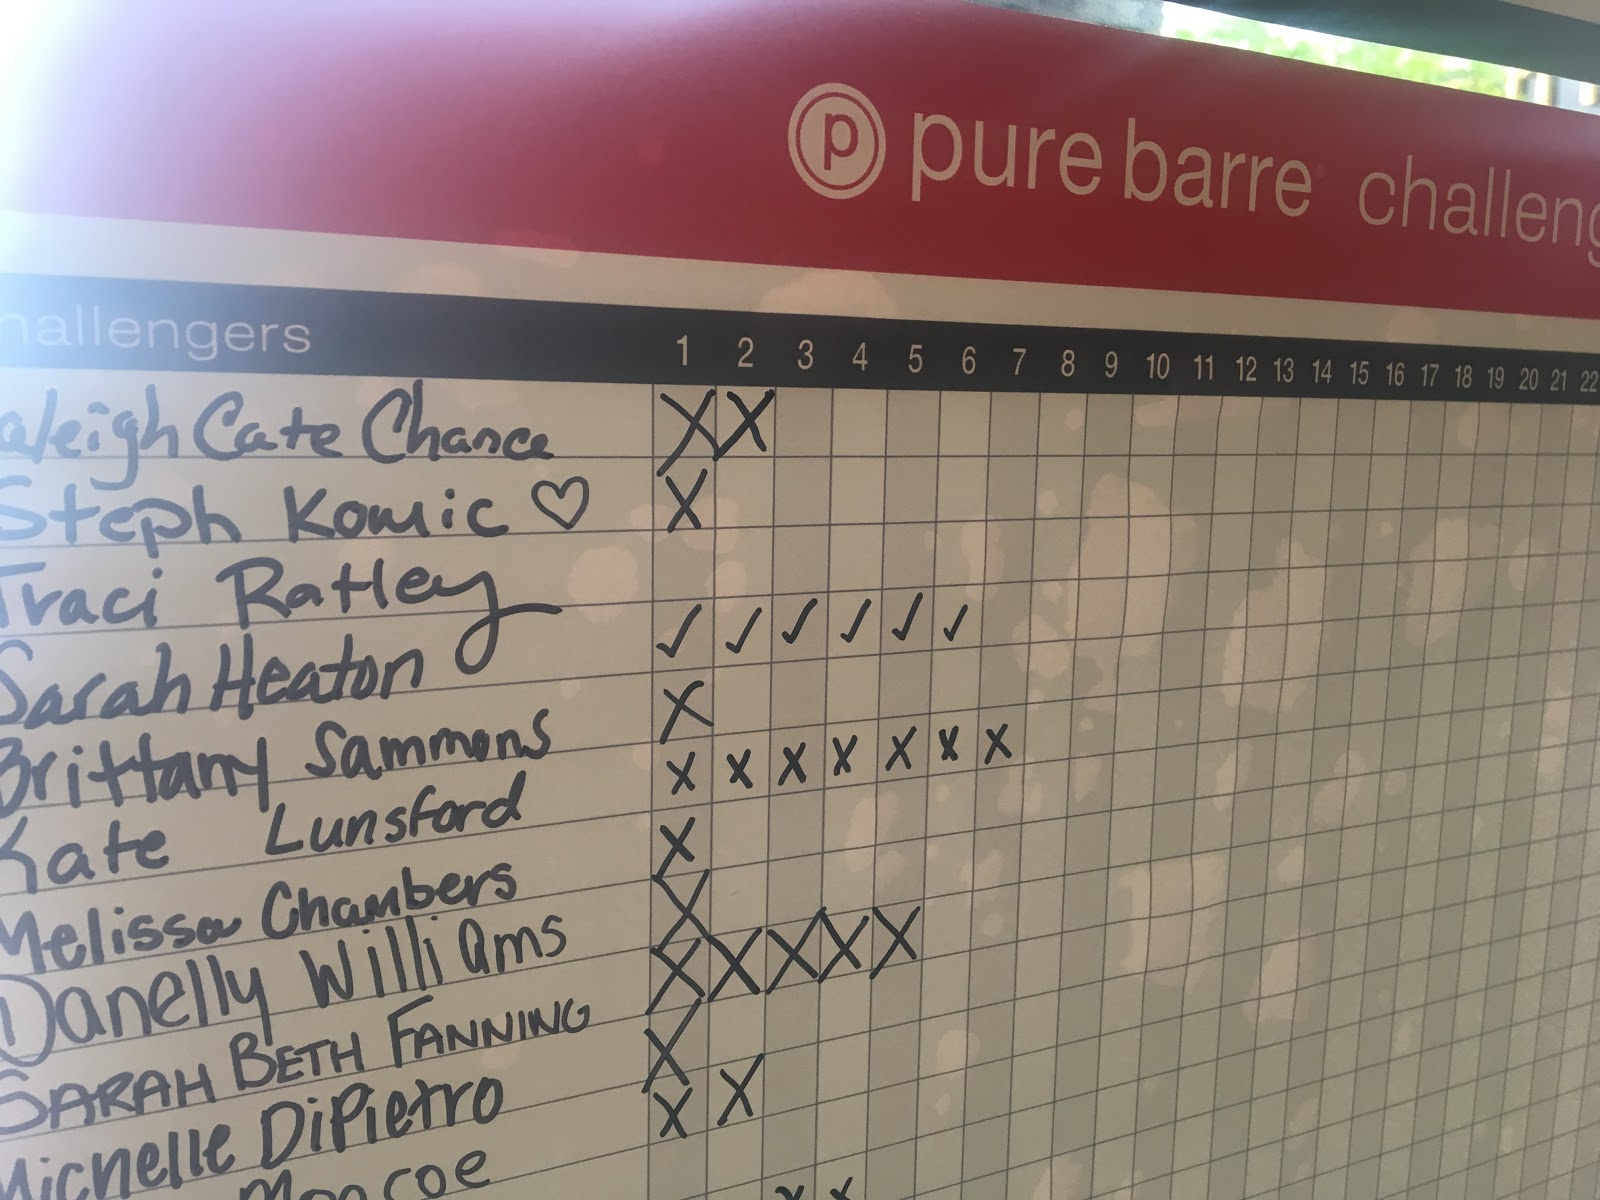 p pure barre challeng
hallengers 1 2 3 4 5 6 7 8 9 10 11 12 13 14 15 16 17 18 19 20 21 22
aleigh Cate Chance X X
Steph Komic ♡ X
Traci Ratley
Sarah Heaton ✓ ✓ ✓ ✓ ✓ ✓
Brittany Sammons X
Kate Lunsford X X X X X X X
Melissa Chambers X
Danelly Williams X
SARAH BETH FANNING X X X X X
Michelle DiPietro X
Monroe X X